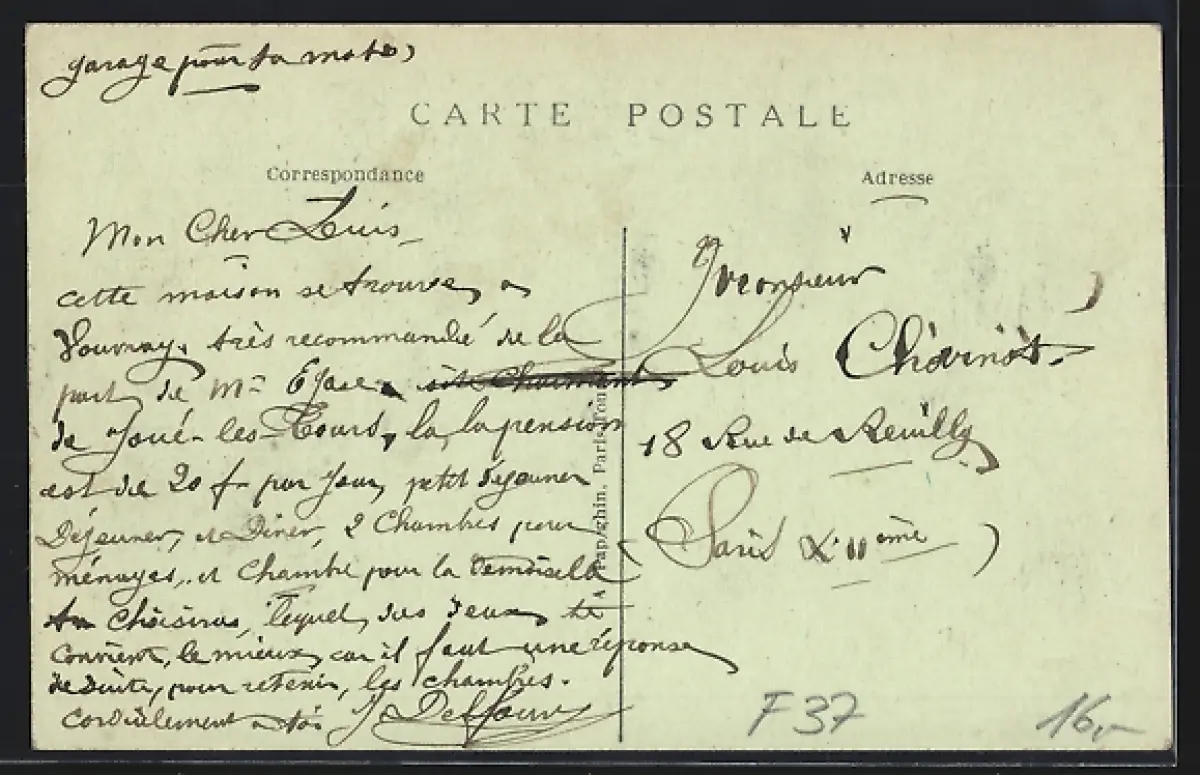 garage pour ta moto
CARTE POSTALE
Correspondance
Adresse
Mon Cher Louis
cette maison se trouve, a
Vouvray, très recommandé de la
part, de Mme
de Joué-les-Tours, la, la pension
est de 20 f. par Jour, petit déjeuner
Déjeuner, et Diner, 2 Chambres pour
ménages, et Chambre pour la Demoiselle
tu Choisiras, lequel, des deux, te
Convient, le mieux, car il faut une réponse
de suite, pour retenir, les chambres.
Cordialement a toi
Monsieur
Louis
18 Rue de Reuilly
Paris XIIème
F37
16,-